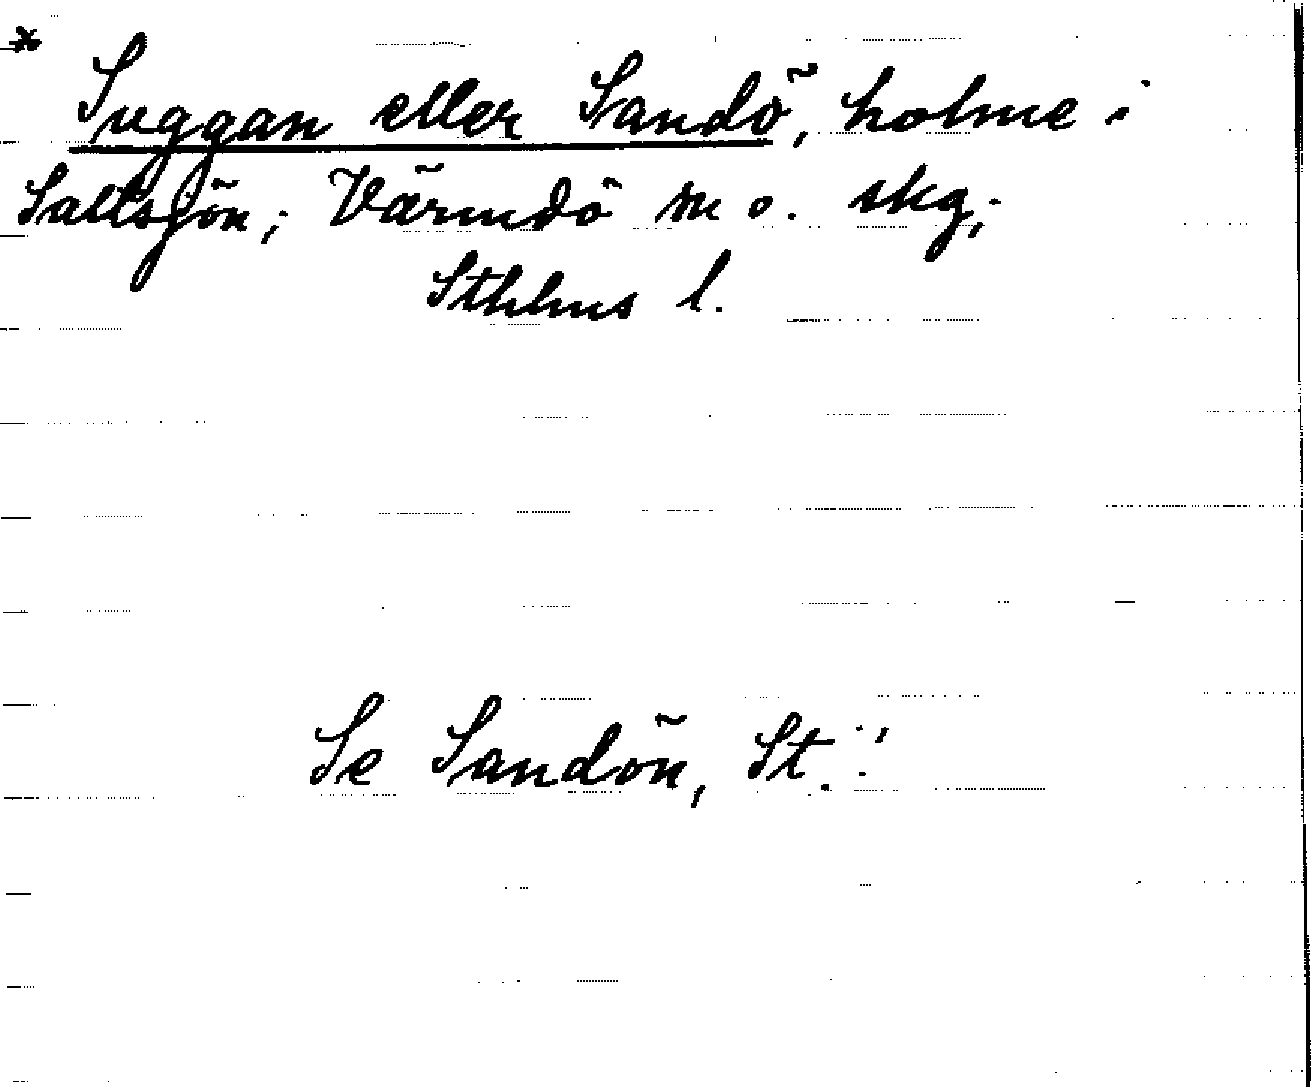 *
Suggan eller Sandö, holme i
Saltsjön; Värmdö sn o. skg;
Sthlms l.
Se Sandön, St.!